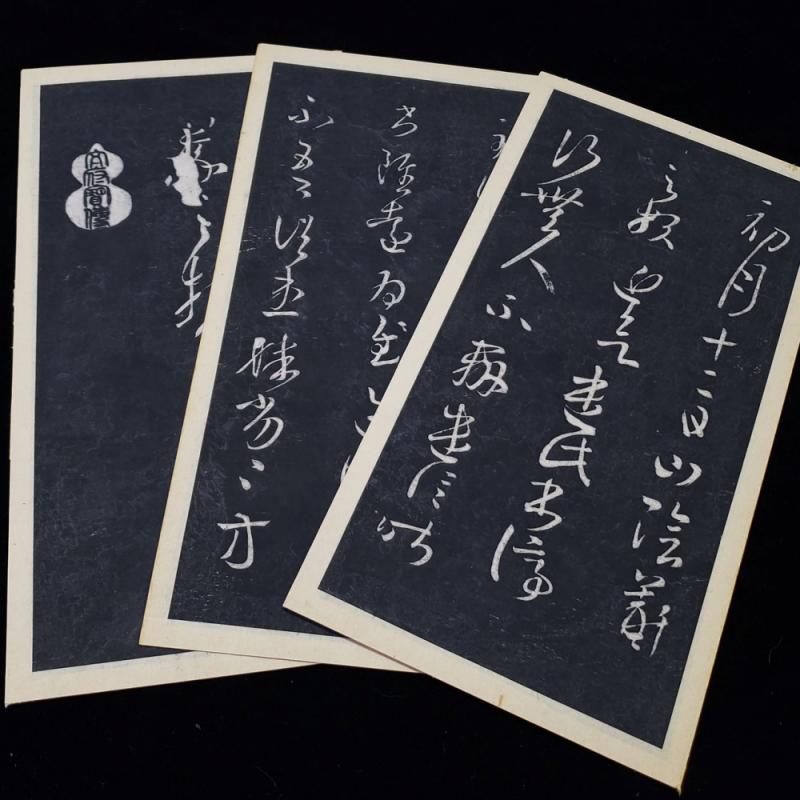 初月十二日山陰羲
之報近欲遣此書停
行無人不辦遣信昨
書雖遠為慰
不吾諸患殊勞〻方
羲之報